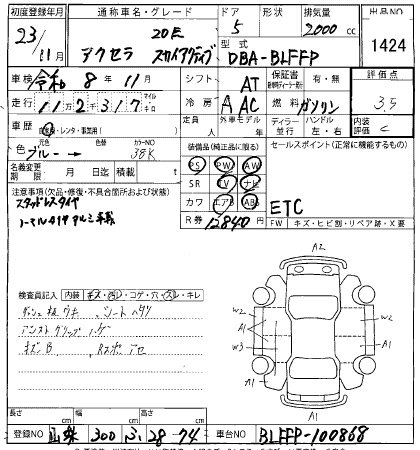 初度登録年月 通称車名・グレード ドア 形状 排気量 出品NO
23/11月 アクセラ 20E スカイアクティブ 5 2000cc 1424
型式 DBA-BLFFP
車検 令和 8年 11月 シフト AT 保証書 有・無 評価点
走行 11万2千317 マイル キロ 冷房 A AC 燃料 ガソリン 3.5
車歴 自家用・レンタ・事業用 定員 人 外車モデル 年 ディーラー 並行 ハンドル 左・右 内装評価 C
元色 色替 カラーNO
色 ブルー → 38K 装備品(純正品に限る) セールスポイント(正常に機能するもの)
名義変更期限 月 日迄 積載 t PS PW AW
注意事項(欠品・修復・不具合箇所および状態) SR TV ナビ
スタッドレスタイヤ カワ エアB ABS
ノーマルタイヤ アルミ R券 12840円 ETC
FW キズ・ヒビ割・リペア跡・X要
A2
検査員記入 内装 キズ・汚レ・コゲ・穴・スレ・キレ
シートヘタリ
キズB
W2 A1 W3 A1 W2 A1 A1
長さ cm 幅 cm 高さ cm
登録NO 山梨 300 ふ 28-74 車台NO BLFFP-100868